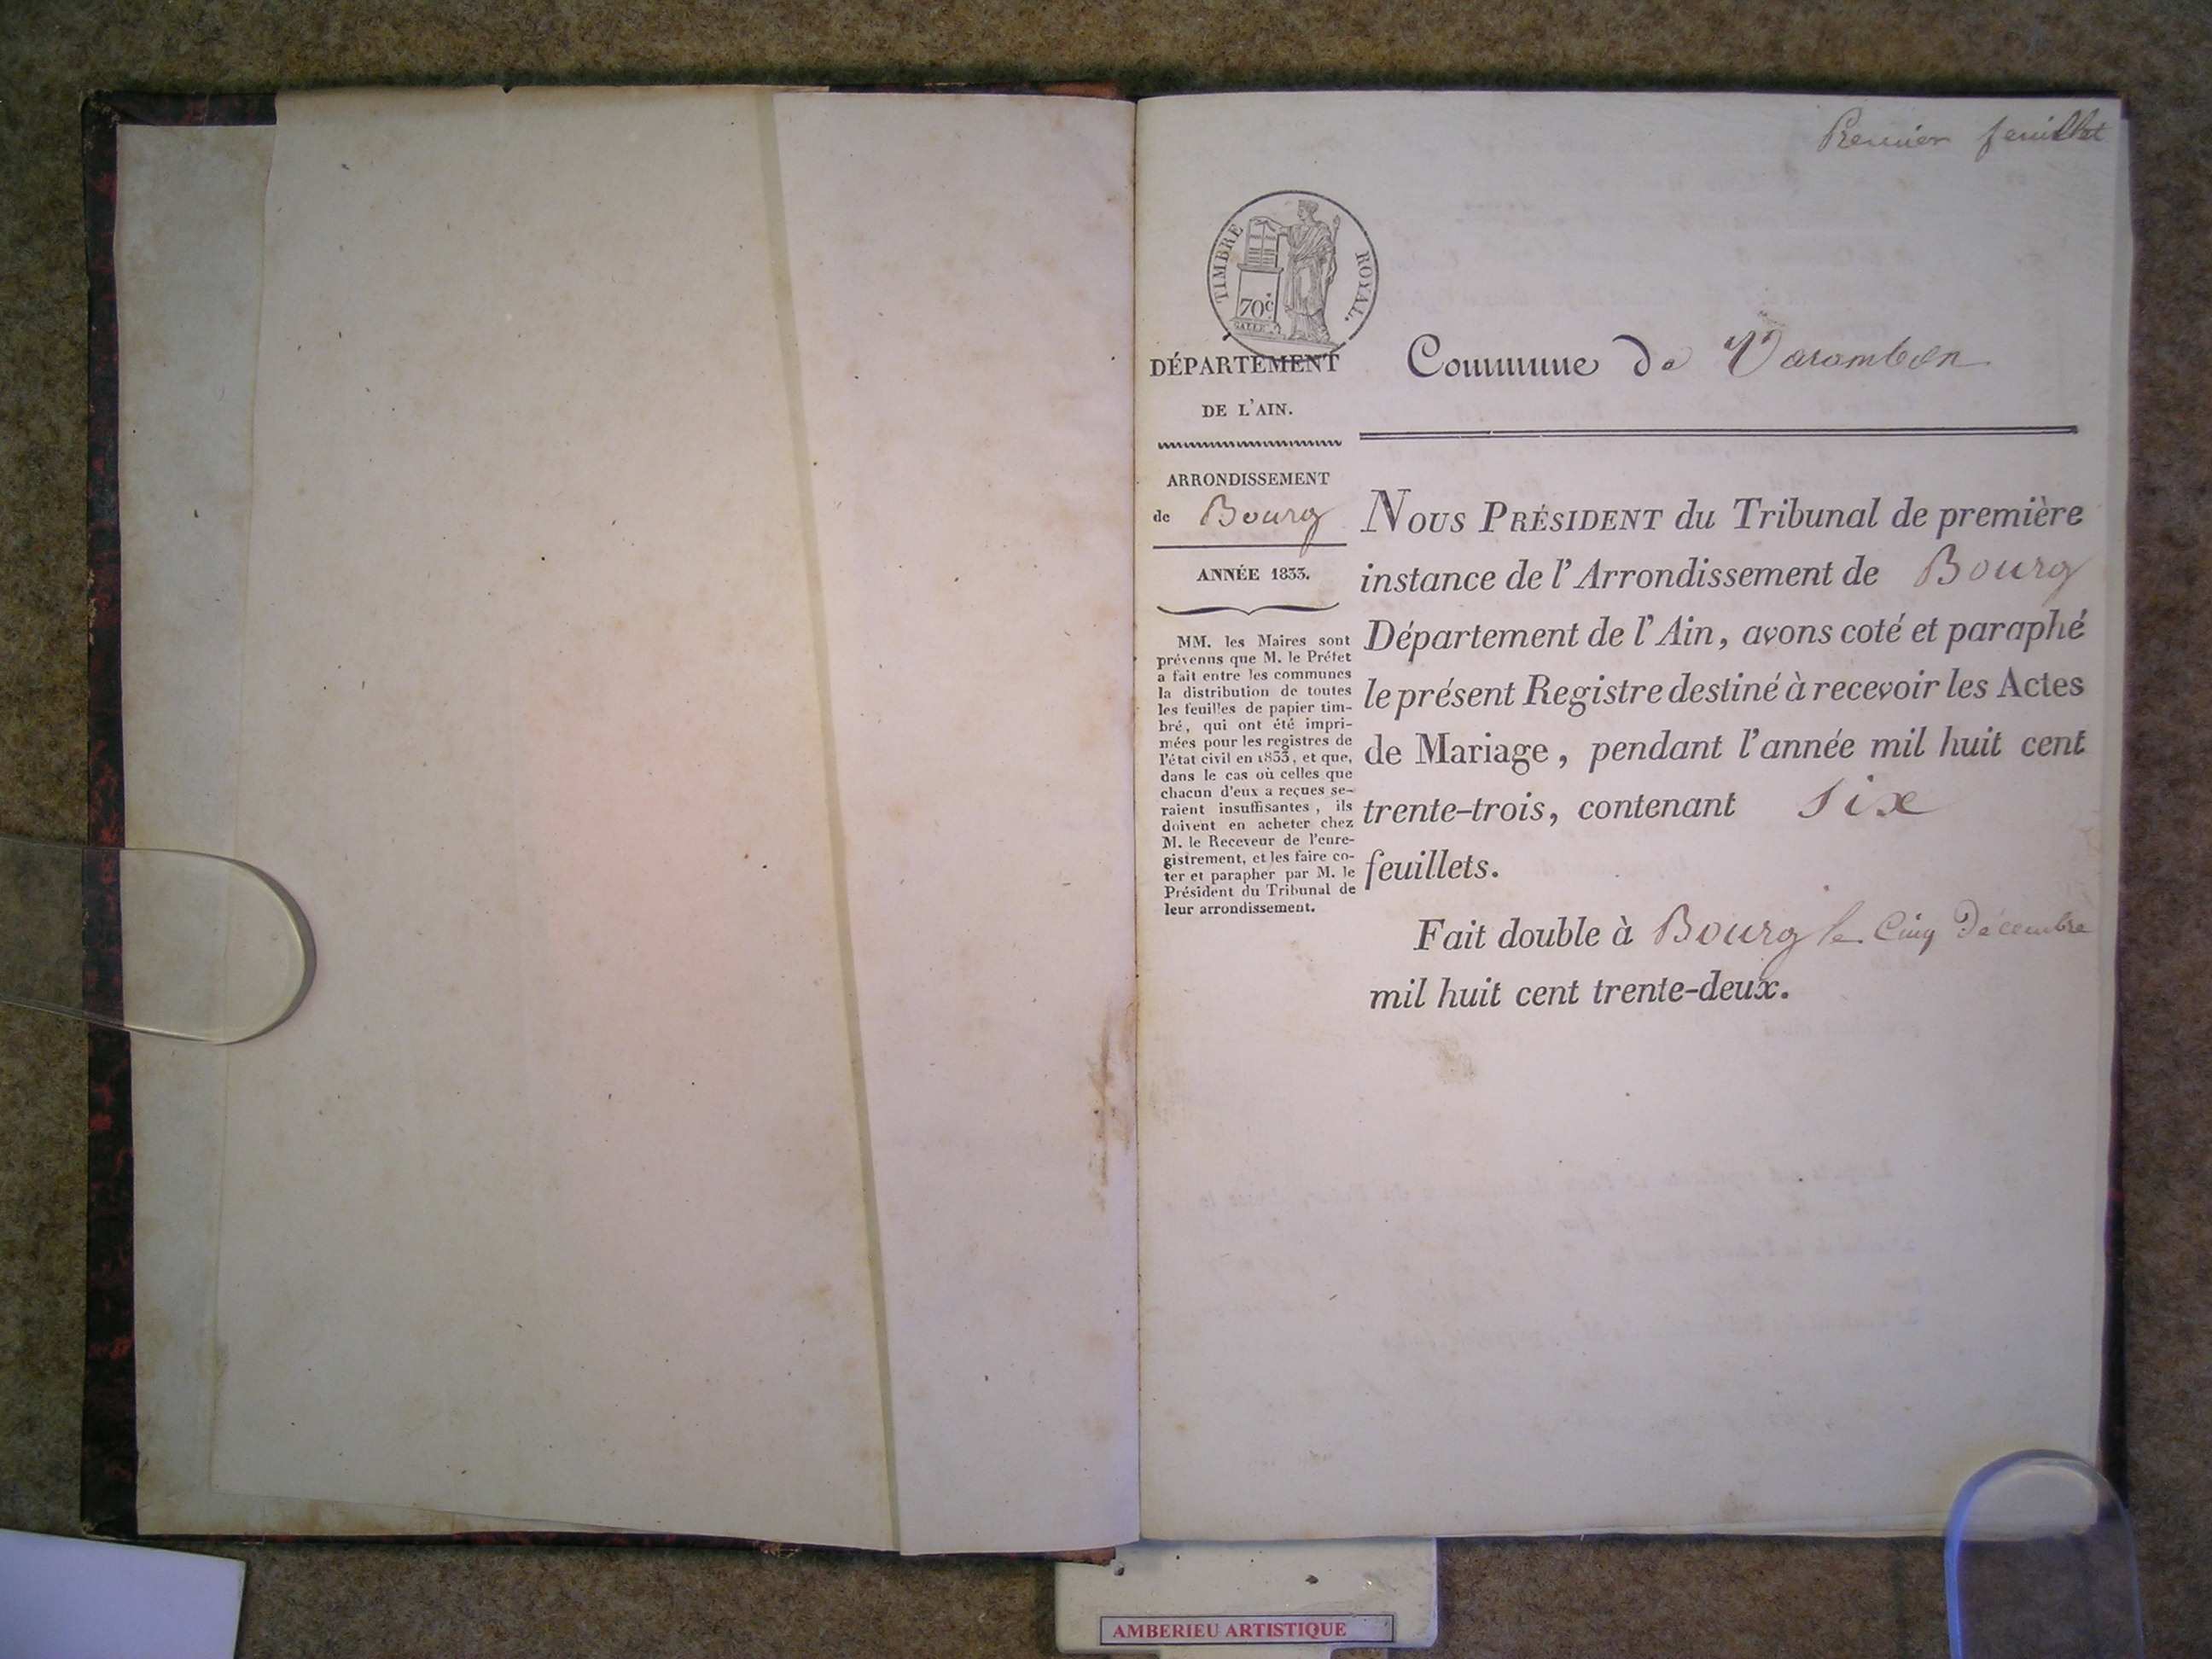 Premier feuillet
TIMBRE ROYAL.
70c
GALLE
DÉPARTEMENT
DE L'AIN.
ARRONDISSEMENT
de Bourg
ANNÉE 1833.
MM. les Maires sont
prévenus que M. le Préfet
a fait entre les communes
la distribution de toutes
les feuilles de papier tim-
bré, qui ont été impri-
mées pour les registres de
l'état civil en 1833, et que,
dans le cas où celles que
chacun d'eux a reçues se-
raient insuffisantes, ils
doivent en acheter chez
M. le Receveur de l'enre-
gistrement, et les faire co-
ter et parapher par M. le
Président du Tribunal de
leur arrondissement.
Commune de Varambon
NOUS PRÉSIDENT du Tribunal de première
instance de l'Arrondissement de Bourg
Département de l'Ain, avons coté et paraphé
le présent Registre destiné à recevoir les Actes
de Mariage, pendant l'année mil huit cent
trente-trois, contenant Six
feuillets.
Fait double à Bourg le Cinq Décembre
mil huit cent trente-deux.
AMBERIEU ARTISTIQUE